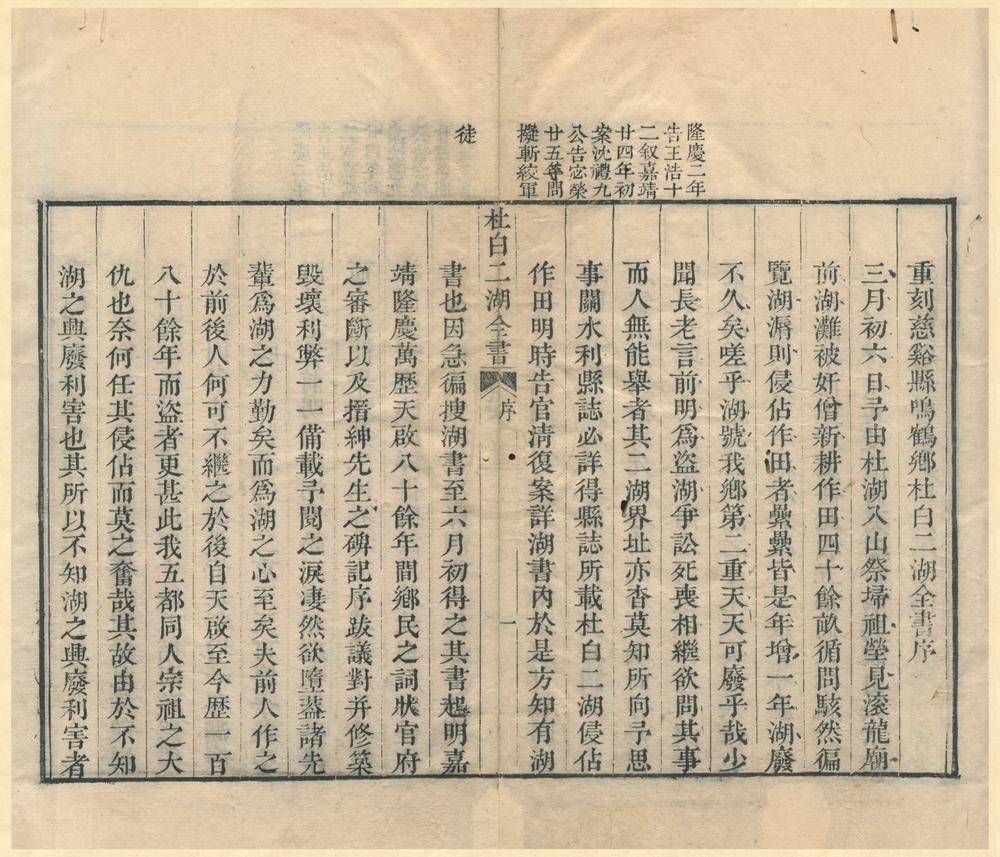 隆慶二年
告王浩十
二叙嘉靖
廿四年初
案沈禮九
公告宓榮
廿五等問
擬斬絞軍
徒
重刻慈谿縣鳴鶴鄉杜白二湖全書序
三月初六日予由杜湖入山祭埽祖塋見滚龍廟
前湖灘被奸僧新耕作田四十餘畝循問駭然徧
覽湖漘則侵佔作田者纍纍皆是年增一年湖廢
不久矣嗟乎湖號我鄉第二重天天可廢乎哉少
聞長老言前明爲盜湖爭訟死喪相繼欲問其事
而人無能舉者其二湖界址亦杳莫知所向予思
事關水利縣誌必詳得縣誌所載杜白二湖侵佔
作田明時告官清復案詳湖書內於是方知有湖
杜白二湖全書
序
一
書也因急徧搜湖書至六月初得之其書起明嘉
靖隆慶萬歷天啟八十餘年間鄉民之詞狀官府
之審斷以及搢紳先生之碑記序跋議對并修築
毀壞利弊一一備載予閱之淚凄然欲墮葢諸先
輩爲湖之力勤矣而爲湖之心至矣夫前人作之
於前後人何可不繼之於後自天啟至今歷一百
八十餘年而盜者更甚此我五都同人宗祖之大
仇也奈何任其侵佔而莫之奮哉其故由於不知
湖之興廢利害也其所以不知湖之興廢利害者